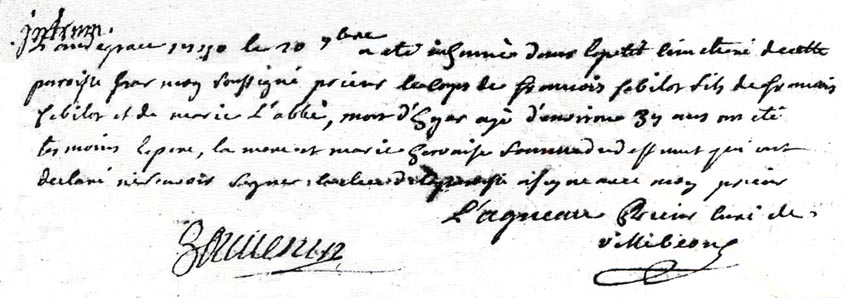 inhum.
L'an de grace 1740 le 20 7bre a été inhumé dans le petit cimetiere de cette
paroisse par moy soussigné prieur le corps de francois febilot fils de francois
febilot et de marie L'abbé, mort d'hyer agé d'environ 3 ans on été
temoins le pere, la mere et marie gervaise du deffunt qui ont
declaré ne scavoir signer a signé avec moy prieur
L'agneau Prieur curé de
villebeon